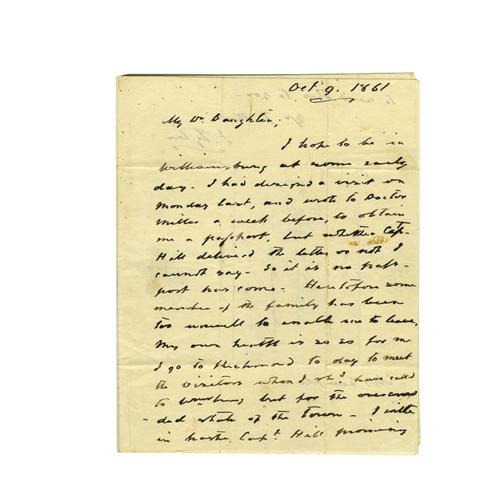 Oct. 9. 1861
My Dr. Daughter,
I hope to be in
Williamsburg at some early
day. I had designed a visit on
Monday last, and wrote to Doctor
Miller a week before, to obtain
me a passport, but whether Capt.
Hill delivered the letter or not I
cannot say. So it is no pass-
port has come. Heretofore some
member of the family has been
too unwell to enable me to leave.
My own health is so so for me
I go to Richmond to day to meet
the visitors whom I shd. have called
to Wmsburg but for the overcrow
ded state of the town. I write
in haste, Capt. Hill promising